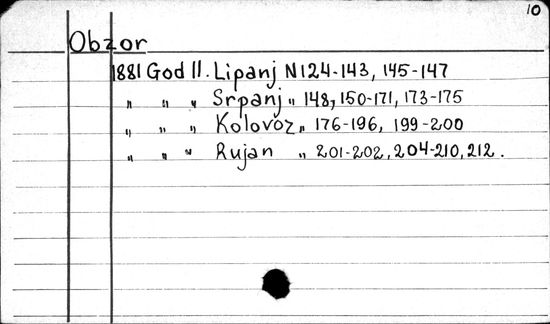 10
Obzor
1881 God II. Lipanj N124-143, 145-147
" " " Srpanj " 148, 150-171, 173-175
" " " Kolovoz " 176-196, 199-200
" " " Rujan " 201-202, 204-210, 212.